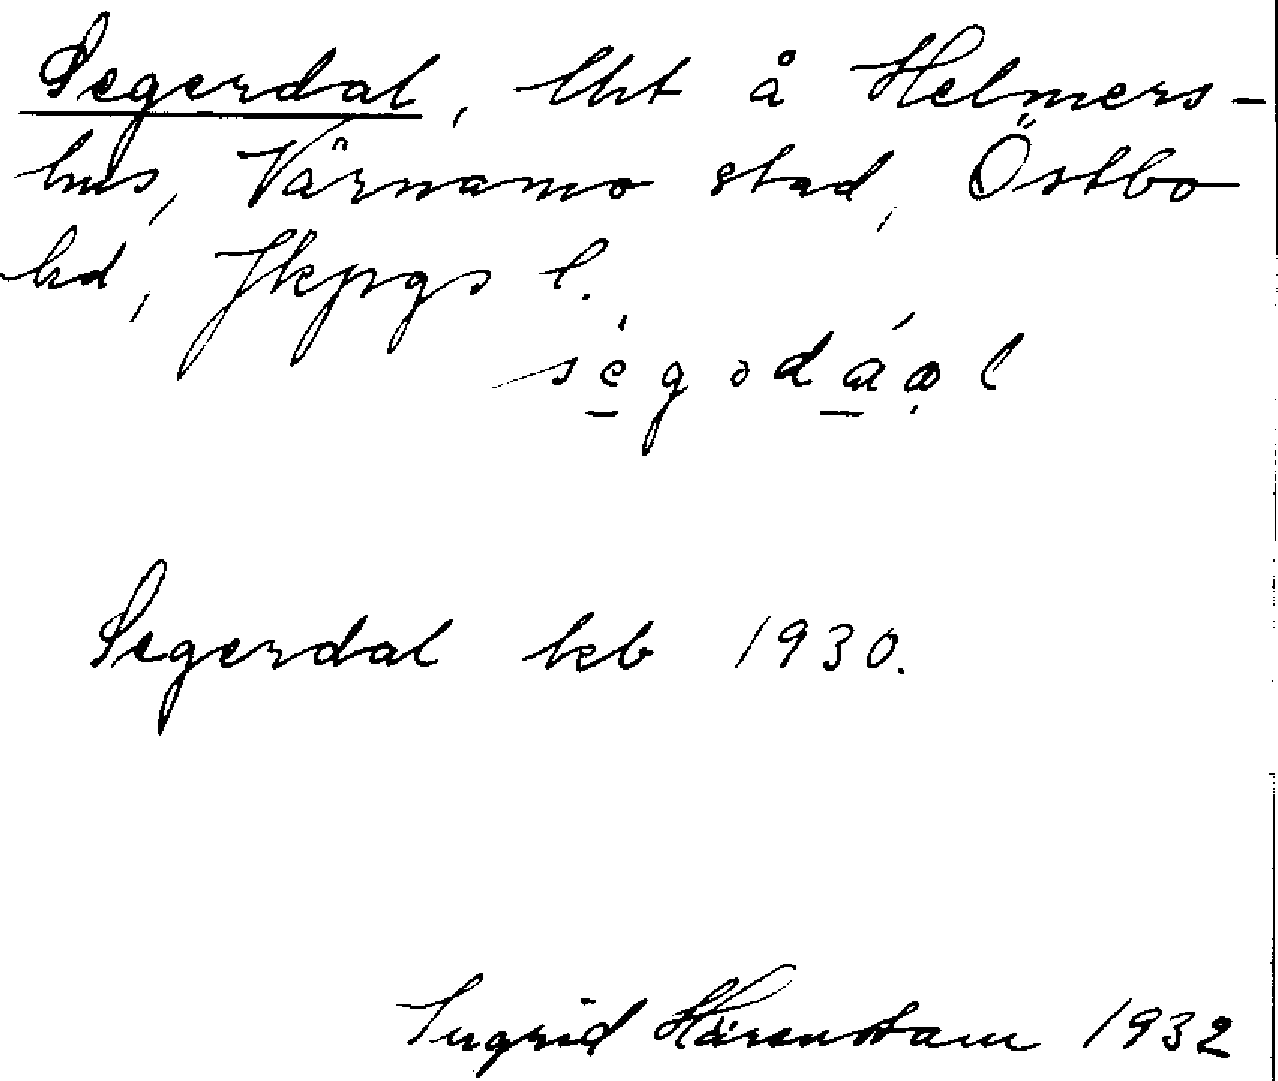 Segerdal, lht å Helmers-
hus, Värnamo stad, Östbo
hd, Jkpgs l.
ségədáɷl
Segerdal kb 1930.
Ingrid Härenstam 1932